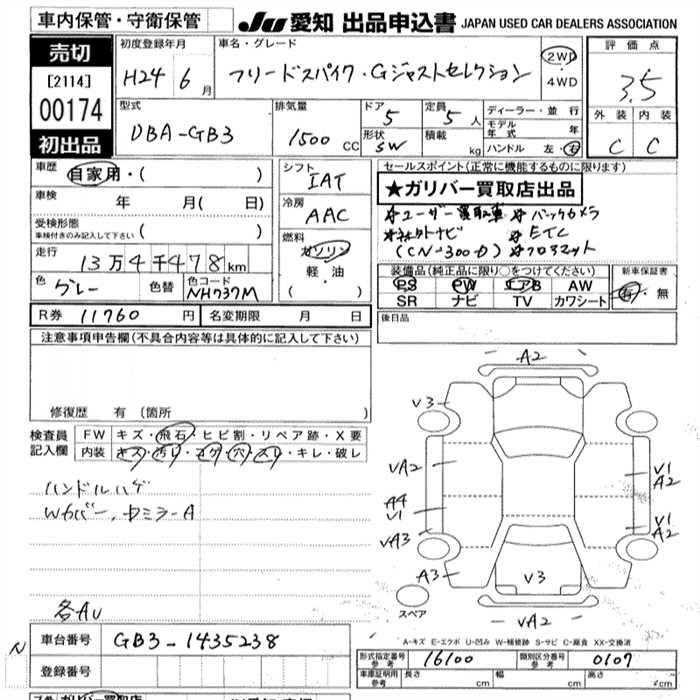 車内保管・守衛保管
JU 愛知 出品申込書 JAPAN USED CAR DEALERS ASSOCIATION
売切
[2114]
00174
初出品
初度登録年月
H24 6月
車名・グレード
フリードスパイク・Gジャストセレクション
2WD
・
4WD
評価点
3.5
外装 内装
C C
型式
DBA-GB3
排気量
1500 CC
ドア
5
形状
SW
定員
5人
積載
kg
ディーラー・並行
モデル年式 年
ハンドル 左・右
車歴
自家用・( )
車検
年 月( 日)
受検形態
車検付きのみ記入して下さい ( )
走行
13万4千478km
色
グレー
色替
色コード
NH737M
シフト
IAT
冷房
AAC
燃料
ガソリン
軽・油
( )
セールスポイント(正常に機能するものに限ります)
★ガリバー買取店出品
*ユーザー買取車 *バックカメラ
*社外ナビ *ETC
(CN-300D) *フロアマット
装備品(純正品に限り○をつけてください)
PS PW エアB AW
SR ナビ TV カワシート
新車保証書
有・無
後日品
R券 11760 円
名変期限 月 日
注意事項申告欄(不具合内容等は具体的に記入して下さい)
修復歴 有(箇所 )
検査員記入欄
FW キズ・飛石・ヒビ割・リペア跡・X要
内装 キズ・汚レ・コゲ・穴・スレ・キレ・破レ
ハンドルハゲ
Wカバー、ドミラーA
各AU
A2
V3
VA2
A4
V1
VA3
A3
V1
A2
V1
A2
V3
VA2
スペア
A-キズ E-エクボ U-凹み W-補修跡 S-サビ C-腐食 XX-交換済
N
車台番号 GB3-1435238
登録番号
形式指定番号 参考 16100
類別区分番号 参考 0107
車庫証明用 参考
長さ cm 幅 cm 高さ cm
ガリバー買取店